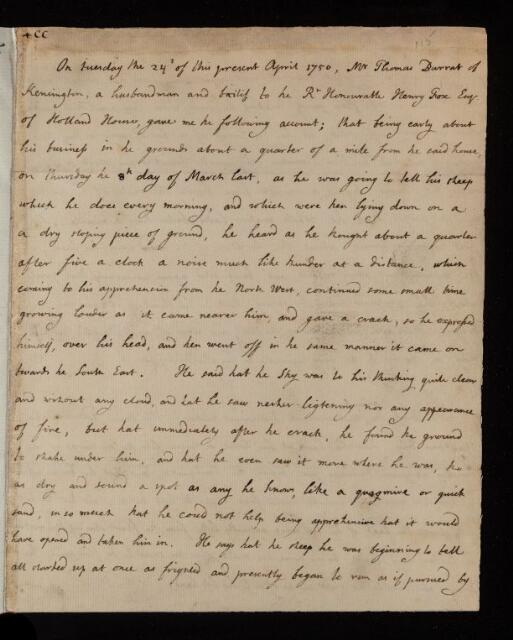 4 CC
115
On tuesday the 24th of this present April 1750, Mr Thomas Darrat of
Kensington, a husbandman and bailif to the Rt Honourable Henry Fox Esqr
of Holland House, gave me he following account; that being early about
his business in he grounds about a quarter of a mile from he said house,
on thursday he 8th day of March last, as he was going to tell his sheep
which he does every morning, and which were hen lying down on a
a dry sloping piece of ground, he heard as he thought about a quarter
after five a clock a noise much like thunder at a distance, which
coming to his apprehension from he North West, continued some small time
growing louder as it came nearer him, and gave a crack, as he expressed
himself, over his head, and hen went off in he same manner it came on
towards he South East. He said hat he sky was to his thinking quite clear
and without any cloud, and hat he saw neither lightening nor any appearance
of fire, but hat immediately after he crack, he found he ground
to shake under him, and hat he even saw it move where he was, tho
as dry and sound a spot as any he knows, like a quagmire or quick
sand, in so much hat he could not help being apprehensive hat it would
have opened and taken him in. He says hat he sheep he was beginning to tell
all crowded up at once as frighted and presently began to run as if pursued by